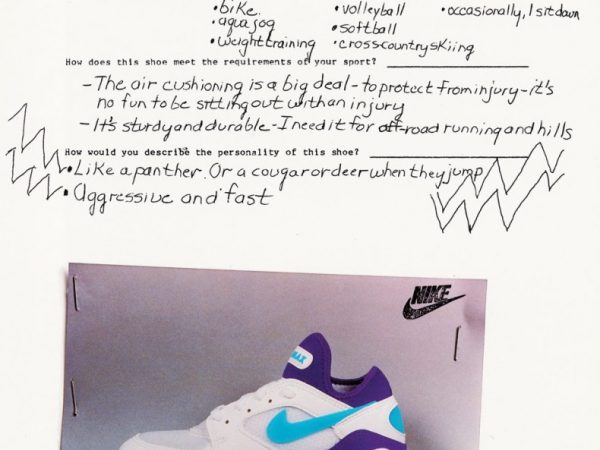 • bike. • volleyball • occasionally, I sit down
• aqua jog • softball
• weight training • cross country skiing
How does this shoe meet the requirements of your sport?
- The air cushioning is a big deal - to protect from injury - it's
no fun to be sitting out with an injury
- It's sturdy and durable - I need it for off-road running and hills
How would you describe the personality of this shoe?
• Like a panther. Or a cougar or deer when they jump
• Aggressive and fast
NIKE
MAX